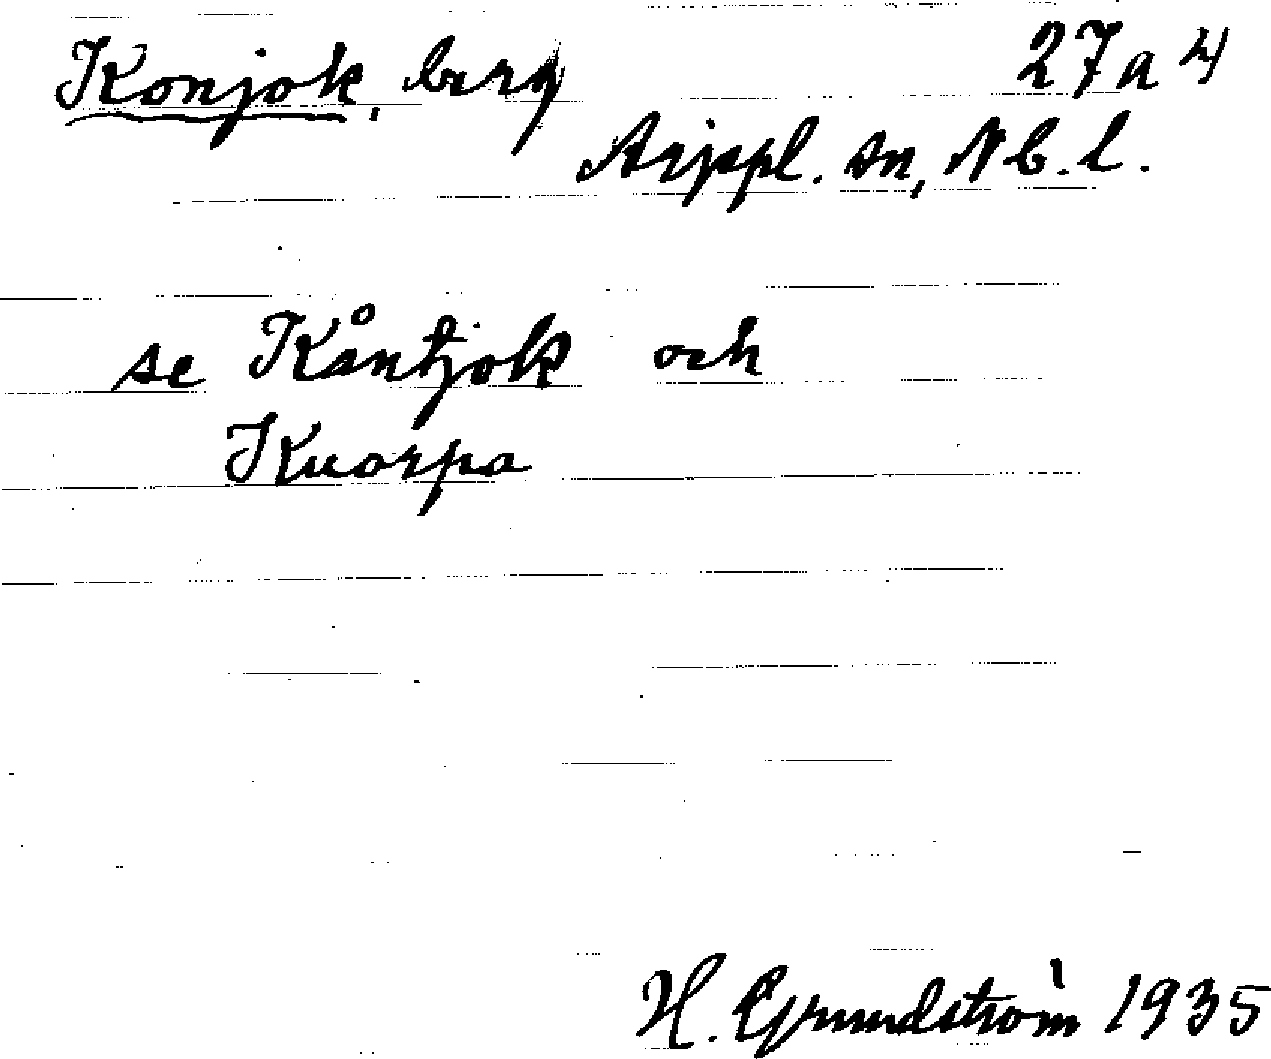 Konjok, berg 27a4
Arjppl. sn, Nb. l.
se Kåntjok och
Kuorpa
H. Grundström 1935